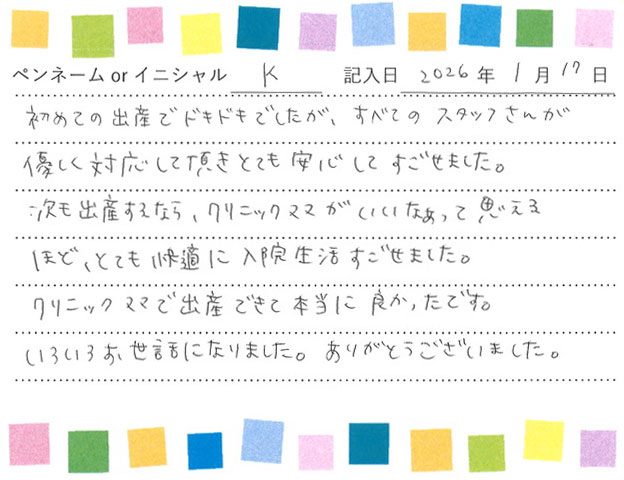 ペンネーム or イニシャル K 記入日 2026年 1月 17日
初めての出産でドキドキでしたが、すべてのスタッフさんが
優しく対応して頂きとても安心してすごせました。
次も出産するなら、クリニックママがいいなぁって思える
ほど、とても快適に入院生活すごせました。
クリニックママで出産できて本当に良かったです。
いろいろお世話になりました。ありがとうございました。